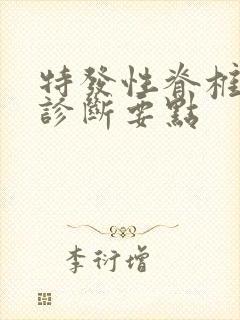 特發性脊柱
診斷要點
李衍增